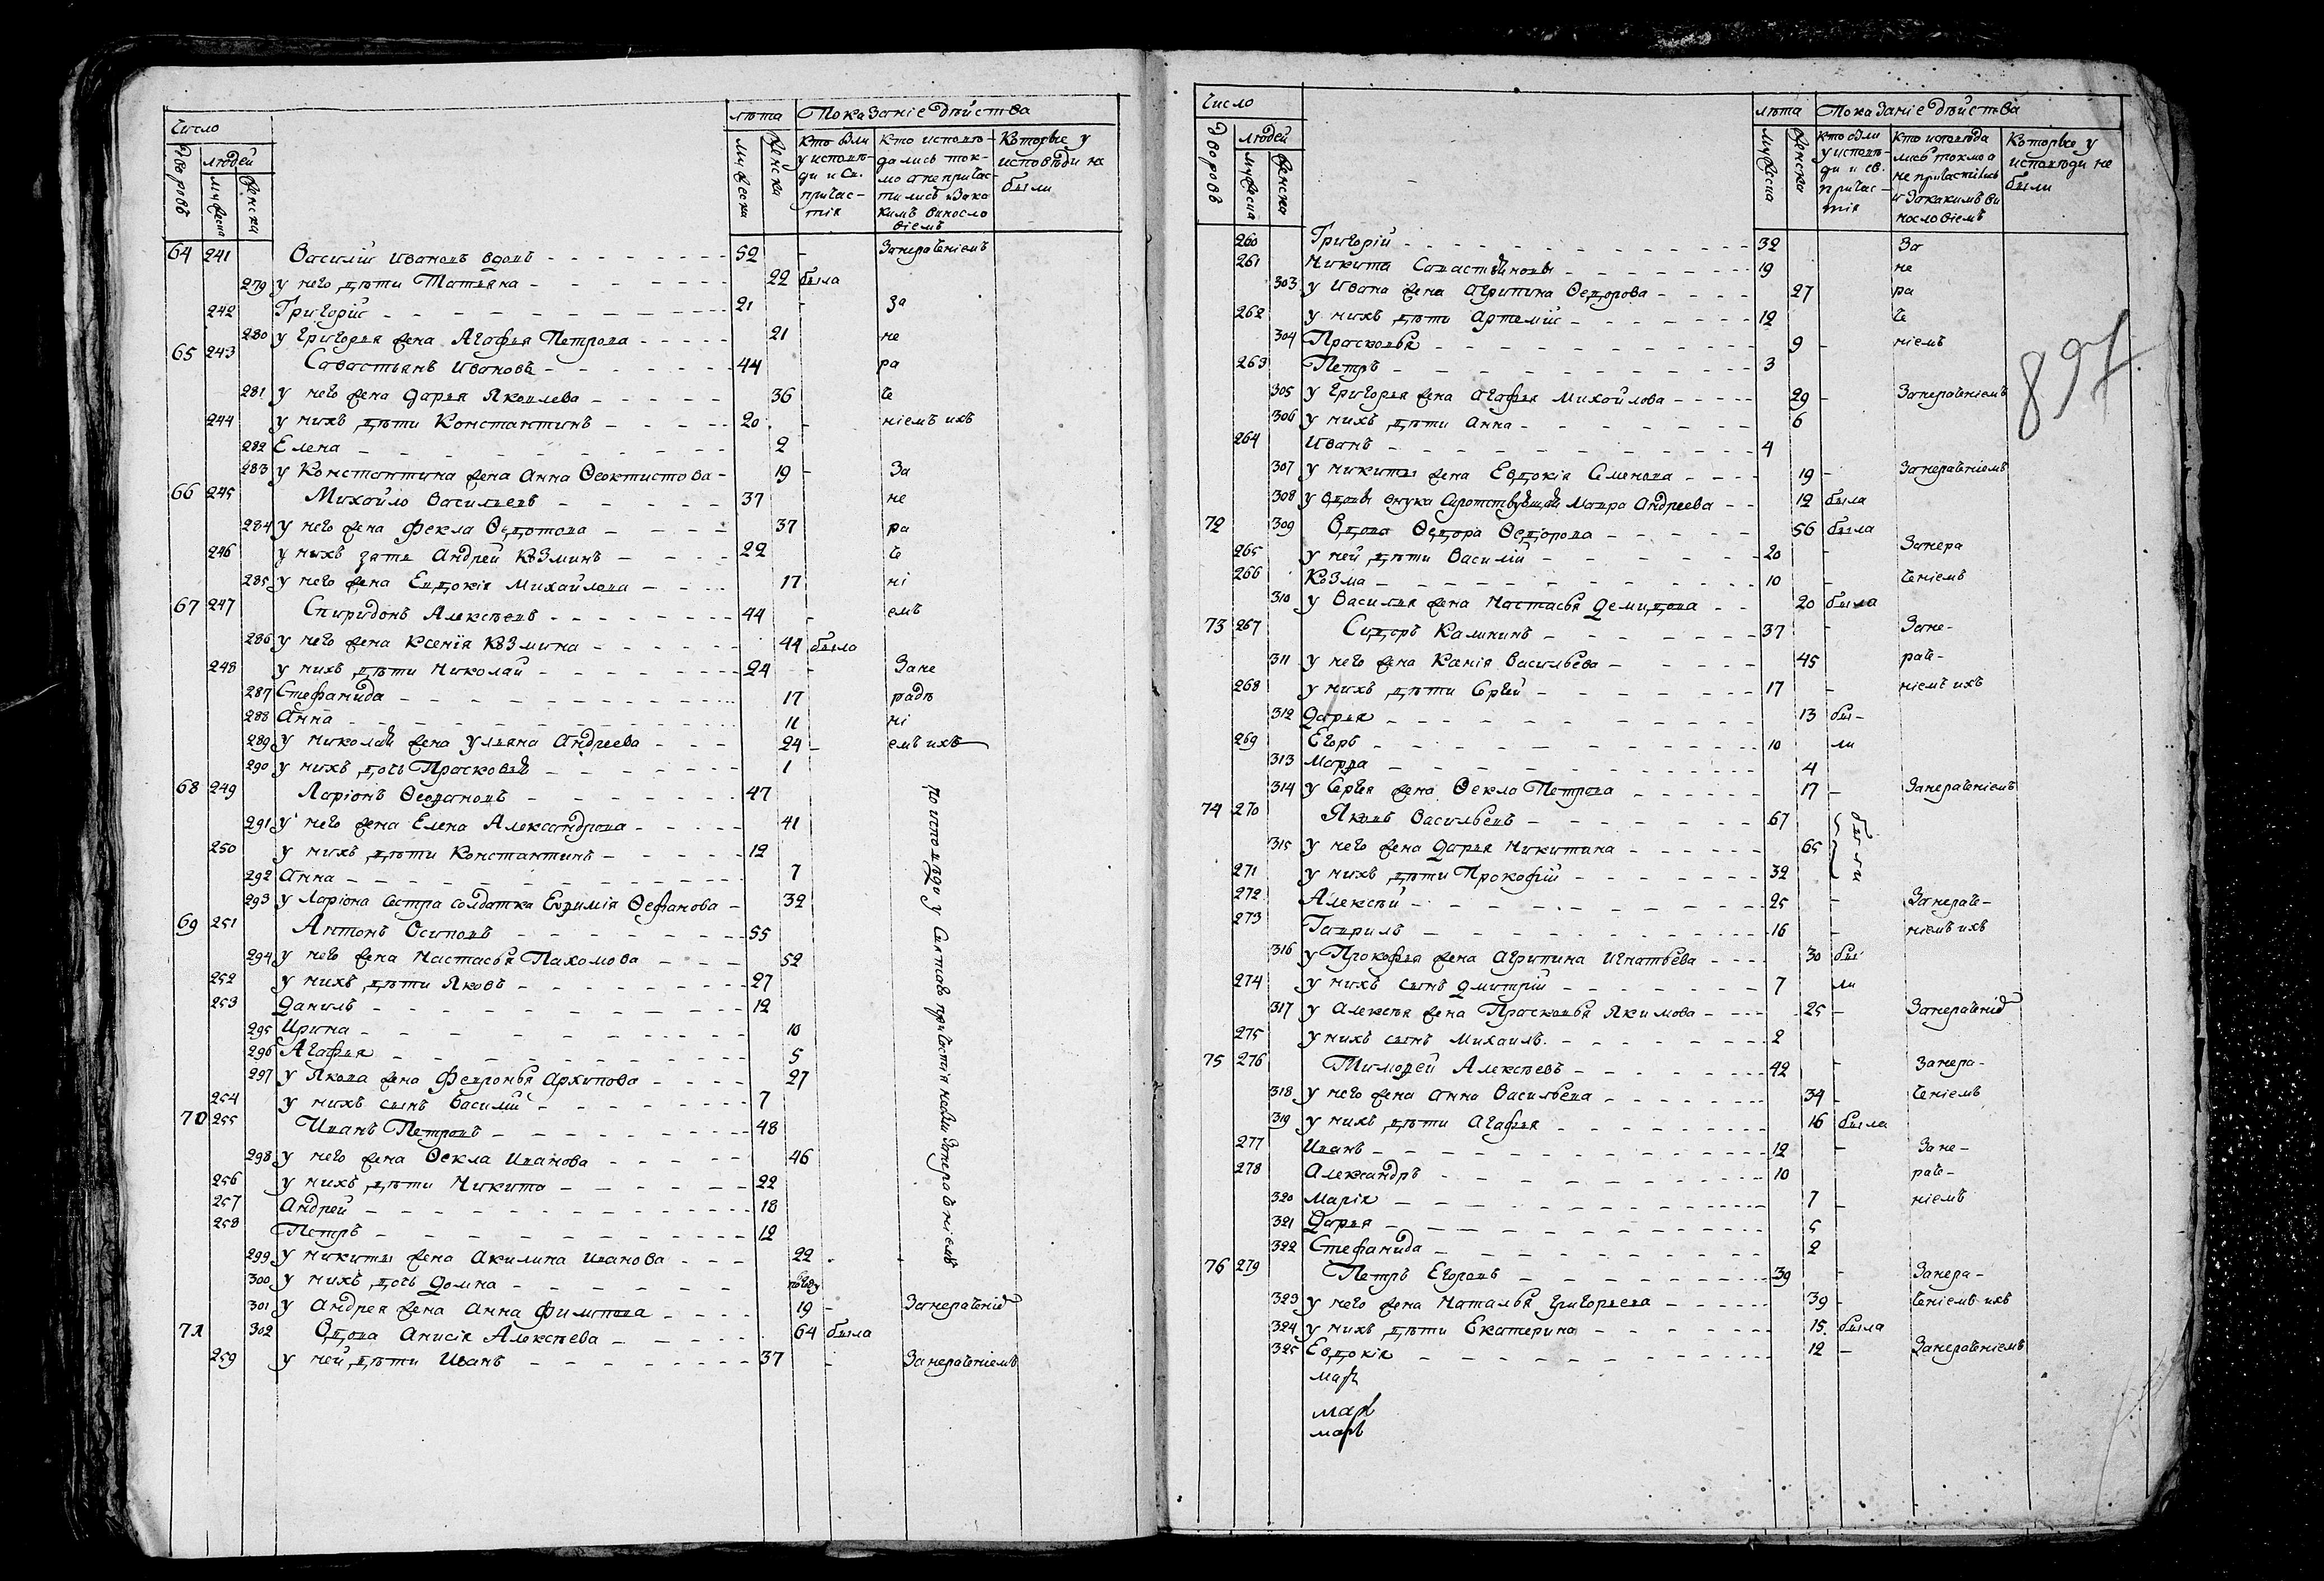 Число
лѣта Показаніе дѣйства
Дворовъ
людей
мужеска
женска
мужеска
женска
кто были у исповѣди и св. причастія
кто исповѣдались токмо а не причастились и за какимъ винословіемъ
Которые у исповѣди не были
64 241 Василій Ивановъ вдовъ 52 - Занераченіемъ
279 у него дѣти Татьяна 22 была
242 Григорій 21 - За
280 у Григорья жена Агафья Петрова 21 не
65 243 Савастьянъ Ивановъ 44 ра
281 у него жена Дарья Яковлева 36 че
244 у нихъ дѣти Константинъ 20 - ніемъ ихъ
282 Елена 2
283 у Константина жена Анна Ѳеоктистова 19 - За
66 245 Михайло Васильевъ 37 не
284 у него жена Фекла Ѳедотова 37 ра
246 у нихъ зять Андрей Козминъ 22 че
285 у него жена Евдокія Михайлова 17 ні
67 247 Спиридонъ Алексѣевъ 44 - емъ
286 у него жена Ксенія Козмина 44 была
248 у нихъ дѣти Николай 24 - Зане
287 Стефанида 17 радѣ
288 Анна 11 ні
289 у Николай жена Ульяна Андреева 24 - емъ ихъ
290 у нихъ дочь Прасковья 1
68 249 Ларіонъ Ѳеофановъ 47
291 у него жена Елена Александрова 41
250 у нихъ дѣти Константинъ 12
292 Анна 7
293 у Ларіона сестра солдатка Евфимія Ѳефанова 32
69 251 Антонъ Осиповъ 55
294 у него жена Настасья Пахомова 52
252 у нихъ дѣти Яковъ 27
253 Данилъ 12
295 Ирина 10
296 Агафья 5
297 у Якова жена Февронья Архипова 27
254 у нихъ сынъ Василій 7
70 255 Иванъ Петровъ 48
298 у него жена Ѳекла Иванова 46
256 у нихъ дѣти Никита 22
257 Андрей 18
258 Петръ 12
299 у Никиты жена Акилина Иванова 22 - -
300 у нихъ дочь Домна
301 у Андрея жена Анна Филипова 19 - Занераченіе
71 302 Вдова Анисія Алексѣева 64 была
259 у ней дѣти Иванъ 37 - Занераченіемъ
у исповѣди у святаго причастія небыли Занераченіемъ
Число
лѣта Показаніе дѣйства
Дворовъ
людей
мужеска
женска
мужеска
женска
кто были у исповѣди и св. причастія
кто исповѣдались токмо а не причастились и Закакимъ винословіемъ
Которые у исповѣди не были
897
260 Григорій 32 За
261 Никита Савастьяновы 19 не
303 у Ивана жена Агрипина Ѳедорова 27 ра
262 у нихъ дѣти Артемій 12 че
304 Прасковья 9 - ніемъ
263 Петръ 3
305 у Григорья жена Агафья Михайлова 29 - Занераченіемъ
306 у нихъ дѣти Анна 6
264 Иванъ 4
307 у Никиты жена Евдокія Семенова 19 - Занераченіемъ
308 у вдовы внука сиротствующая Мавра Андреева 12 была
72 309 Вдова Ѳедора Ѳедорова 56 была
265 у ней дѣти Василій 20 - Занера
266 Козма 10 - ченіемъ
310 у Василья жена Настасья Демидова 20 была
73 267 Сидоръ Калининъ 37 - Зане-
311 у него жена Ксенія Васильева 45 раче-
268 у нихъ дѣти Сергѣй 17 - ніемъ ихъ
312 Дарья 13 бы-
269 Егоръ 10 ли
313 Марфа 4
314 у Сергѣя жена Ѳекла Петрова 17 - Занераченіемъ
74 270 Яковъ Васильевъ 67 были
315 у него жена Дарья Никитина 65
271 у нихъ дѣти Прокофій 32
272 Алексѣй 25 - Занераче-
273 Гаврилъ 16 - ніемъ ихъ
316 у Прокофья жена Агрипина Игнатьева 30 бы
274 у нихъ сынъ Дмитрій 7 ли
317 у Алексѣя жена Прасковья Якимова 25 - Занераченіе
275 у нихъ сынъ Михаилъ 2
75 276 Тимофей Алексѣевъ 42 - Занера-
318 у него жена Анна Васильева 34 - ченіемъ
319 у нихъ дѣти Агафья 16 была
277 Иванъ 12 - Зане-
278 Александръ 10 раче-
320 Марія 7 - ніемъ
321 Дарья 5
322 Стефанида 2
76 279 Петръ Егоровъ 39 - Занера-
323 у него жена Наталья Григорьева 39 - ченіемъ ихъ
324 у нихъ дѣти Екатерина 15 была
325 Евдокія 12 - Занераченіемъ
мар
мар
мар